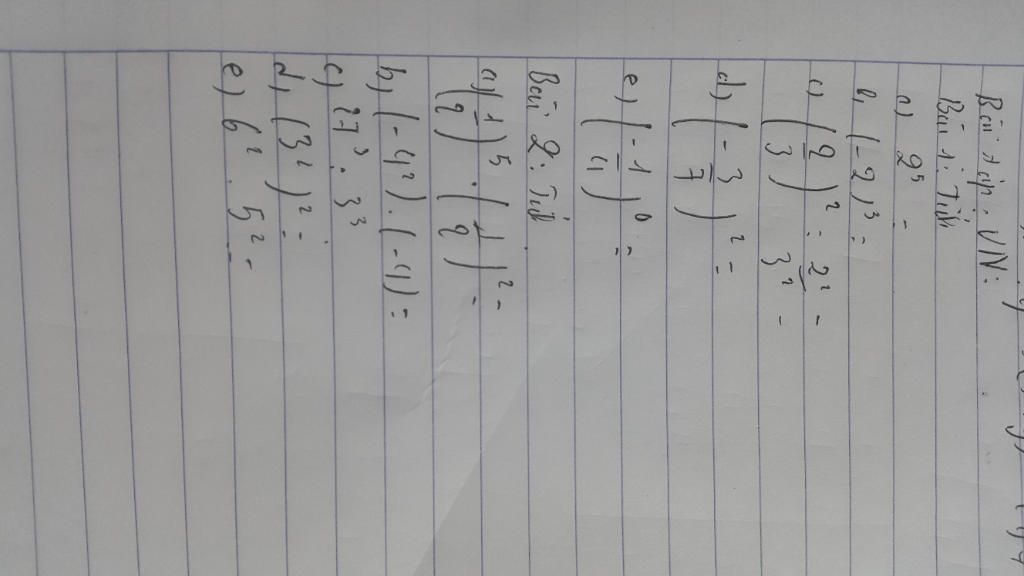 Bài tập VN:
Bài 1: Tính
a) 2⁵ =
b, (-2)³ =
c) (2/3)² = 2²/3² =
d) (-3/7)² =
e) (-1/4)⁰ =
Bài 2: Tính
a) (1/2)⁵ . (1/2)² =
b) (-4²) . (-4) =
c) 27³ : 3³
d) (3²)² =
e) 6² . 5² =